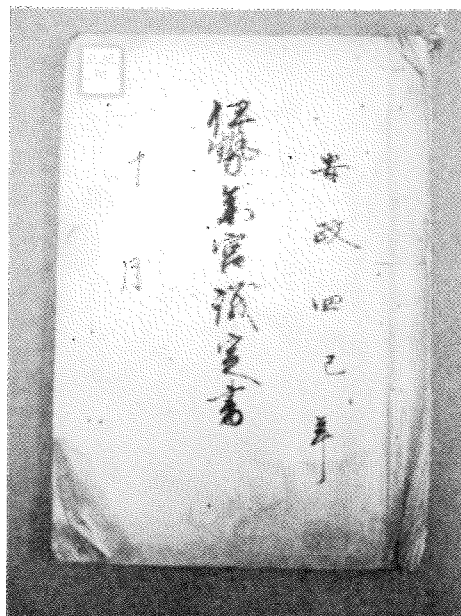 安政四巳年
伊勢参宮議定書
十月